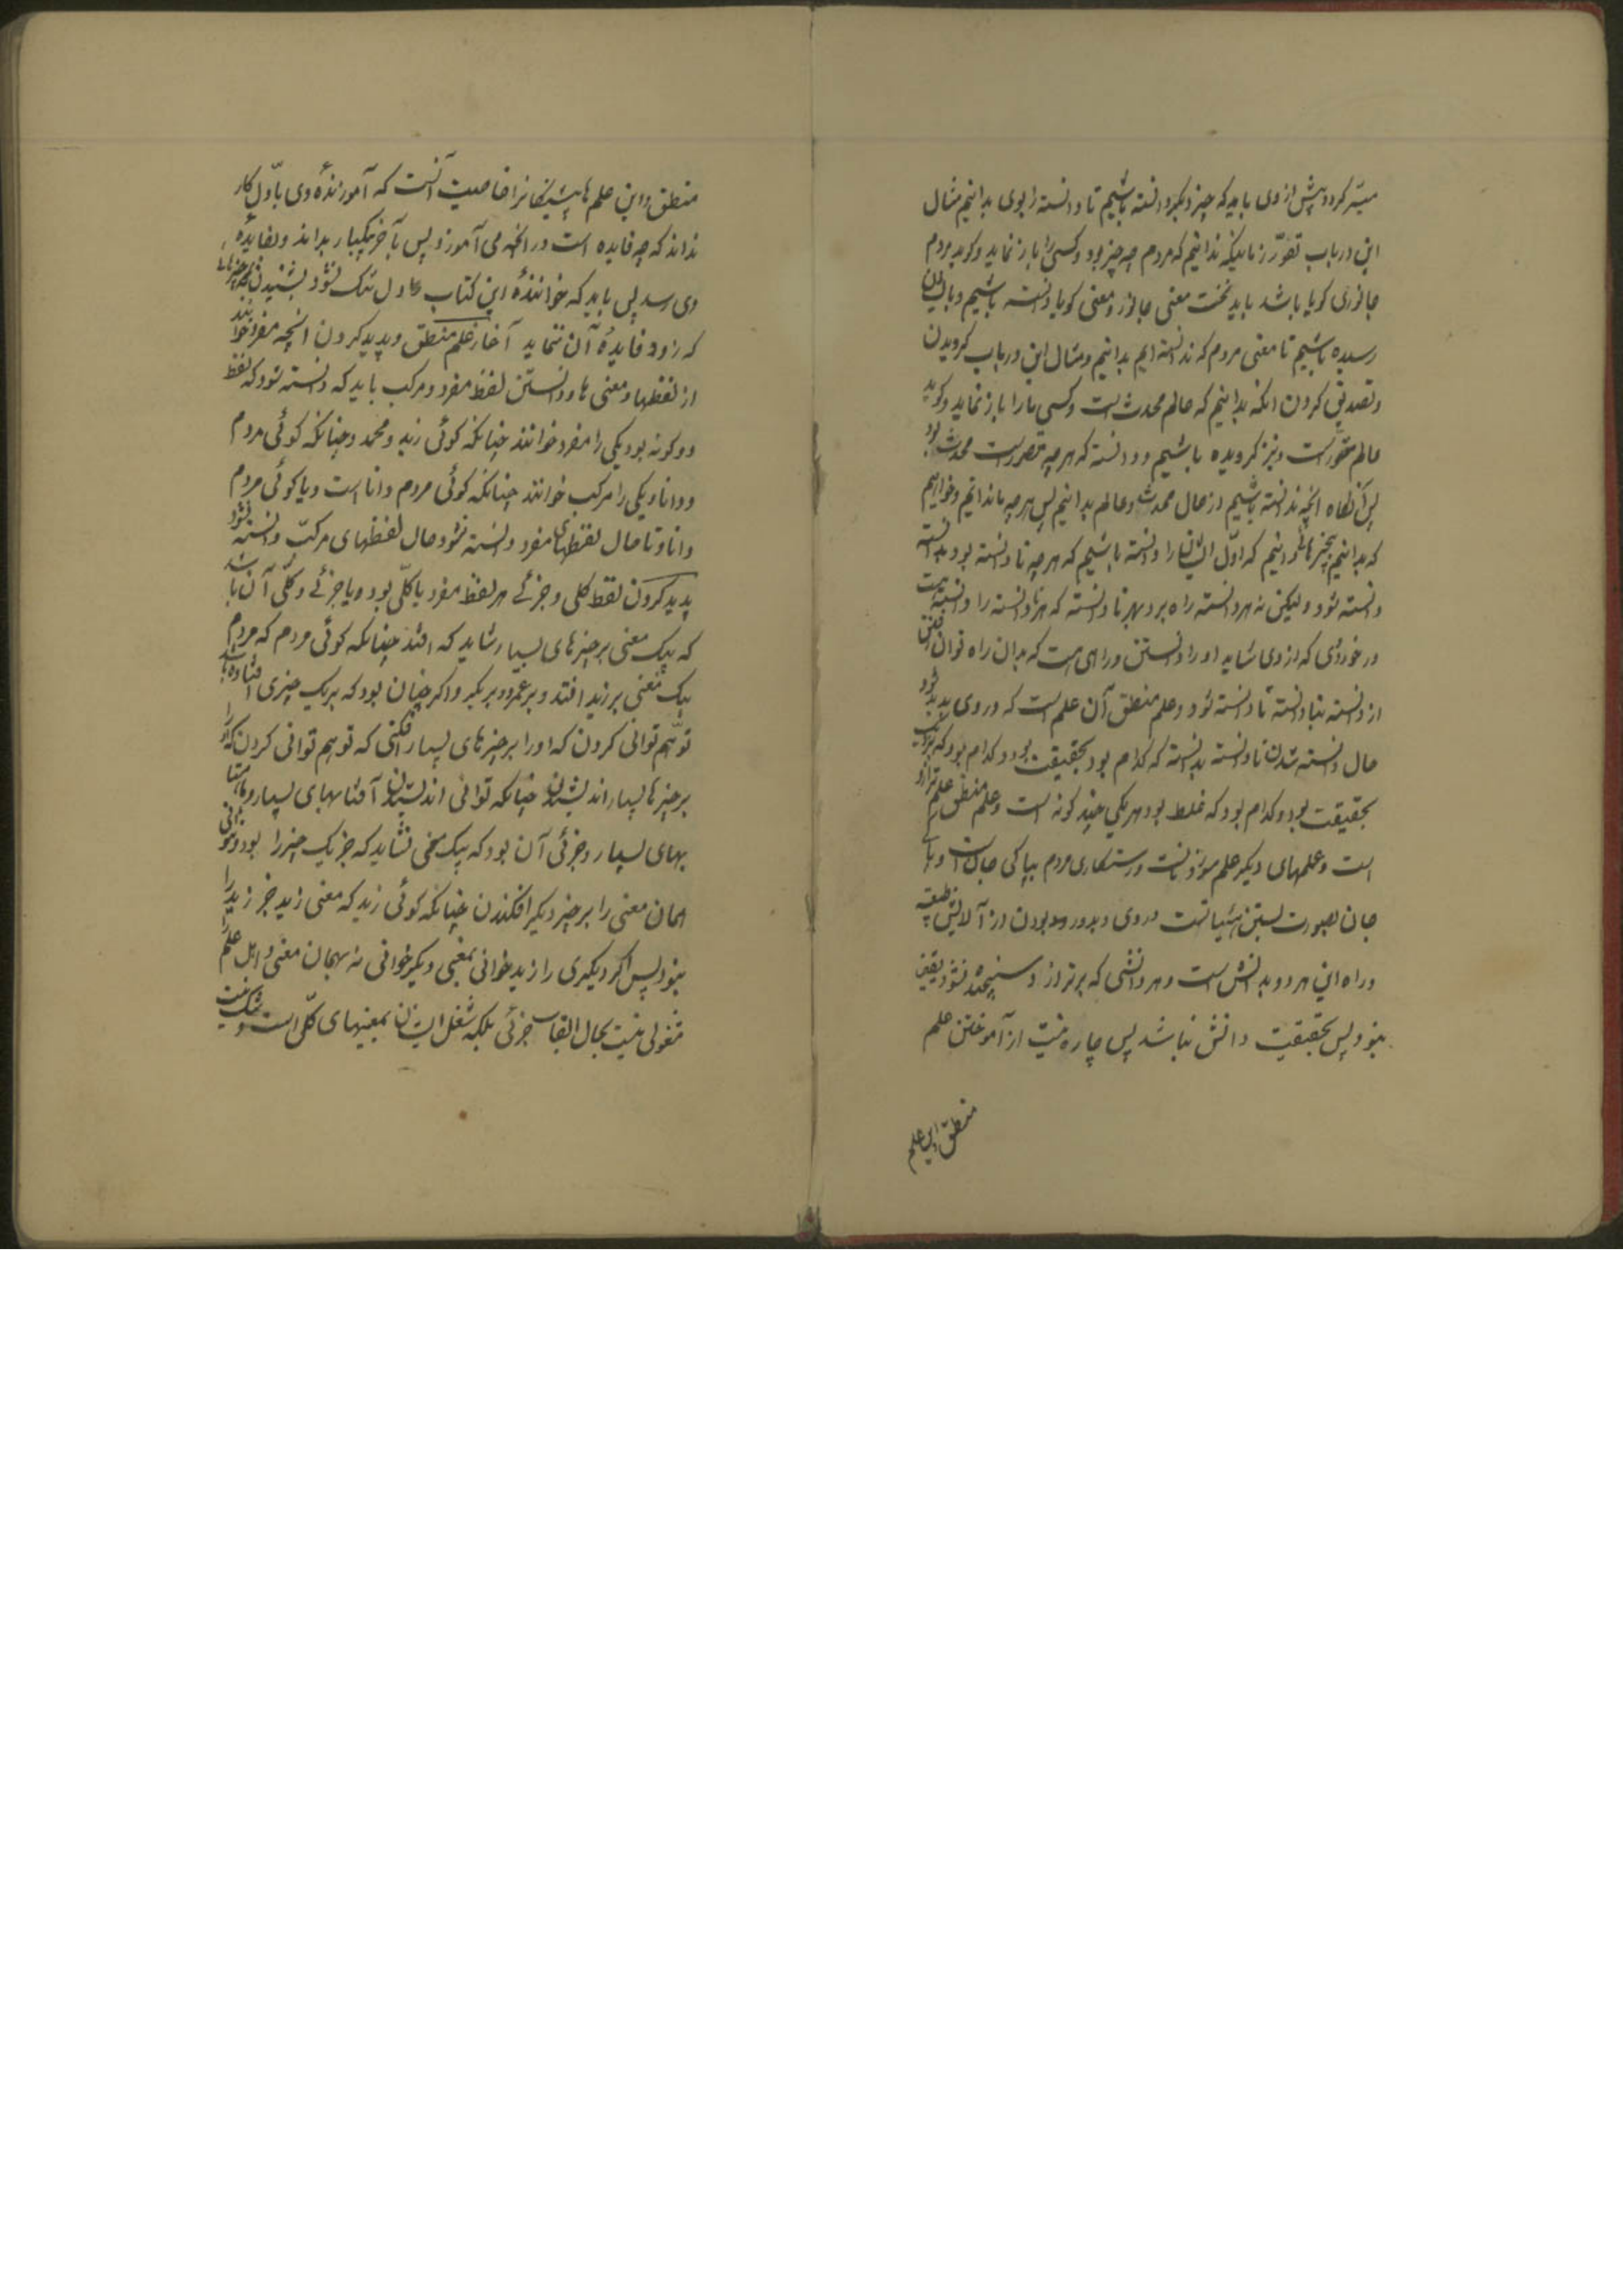 میسّر کردد پیش از وی باید که چیز دیگر دانسته باشیم تا نادانسته را بوی بدانیم مثال
این در باب تصوّر زمانیکه ندانیم که مردم چه چیز بود و کسی را باز نماید و کوید مردم
جانوری کویا باشد باید نخست معنی جانور و معنی کویا دانسته باشیم و بایشان
رسیده باشیم تا معنی مردم که ندانسته ایم بدانیم و مثال این در باب کرویدن
و تصدیق کردن انکه بدانیم که عالم محدث است و کسی ما را باز نماید و کوید
عالم مصوّرست و نیز کرویده باشیم و دانسته که هر چه مصورست محدث بود
پس آنکاه انچه ندانسته باشیم از حال محدث و عالم بدانیم پس هر چه ما ندانیم و خواهیم
که بدانیم بچیزهائی دانیم که اوّل ایشانرا دانسته باشیم که هر چه نادانسته بود بدانسته
دانسته شود ولیکن نه هر دانسته راه برد بهر نادانسته که هر نادانسته را دانسته هست
در خوردی که از وی شاید او را دانستن و راهی هست که بدان راه توان رفتن
از دانسته بنادانسته تا دانسته شود و علم منطق آن علم است که در وی پدید شود
حال دانسته شدن نادانسته بدانسته که کدام بود بحقیقت بود و کدام بود که نزدیک
بحقیقت بود و کدام بود که غلط بود و هر یکی چند کونه است و علم منطق علم ترازو
است و علمهای دیکر علم سوزیانست و رستکاری مردم بپاکی جان است و پاکی
جان بصورت بستن هستیهاست در وی و بدور بودن از آلایش طبیعت
و راه این هر دو بدانش است و هر دانشی که بترازو سنجیده نشود یقین
نبود پس بحقیقت دانش نباشد پس چاره نیست از آموختن علم
منطق و این علم
منطق و این علم های پیشینکانرا خاصیت آنست که آموزندهٔ وی باوّل کار
نداند که چه فایده است در انچه می آموزد پس بآخر بیکبار بداند و بفایدهٔ
وی رسد پس باید که خوانندهٔ این کتاب را دل تنک نشود بشنیدن چیزهائی
که زود فایدهٔ آن ننماید آغاز علم منطق و پدید کردن انچه مفرد خوانند
از لفظها و معنی ها و دانستن لفظ مفرد و مرکب باید که دانسته شود که لفظ
دو کونه بود یکی را مفرد خوانند چنانکه کوئی زید و محمد و چنانکه کوئی مردم
و دانا و یکی را مرکب خوانند چنانکه کوئی مردم دانا است و یا کوئی مردم
دانا و تا حال لفظهای مفرد دانسته نشود حال لفظهای مرکّب دانسته نشود
پدید کردن لفظ کلی و جزئی هر لفظ مفرد یا کلّی بود و یا جزئی و کلّی آن باشد
که بیک معنی بر چیزهای بسیار شاید که افتد چنانکه کوئی مردم که مردم
بیک معنی بر زید افتد و بر عمرو و بر بکر و اکر چنان بود که بر یک چیزی افتاده باشد
توهّم توانی کردن که او را بر چیزهای بسیار افکنی که توهم توانی کردن که او را
بر چیزها بسیار اندیشیدن چنانکه توانی اندیشیدن آفتابهای بسیار و ماهتا
بهای بسیار و جزئی آن بود که بیک معنی نشاید که جز یک چیز را بود و نتوانی
همان معنی را بر چیز دیکر افکندن چنانکه کوئی زید که معنی زید جز زید را
نبود پس اکر دیکری را زید خوانی بمعنی دیکر خوانی نه بهمان معنی و اهل علم را
مشغولی نیست بحال الفاظ جزئی بلکه شغل ایشان بمعنیهای کلّی است و شک نیست